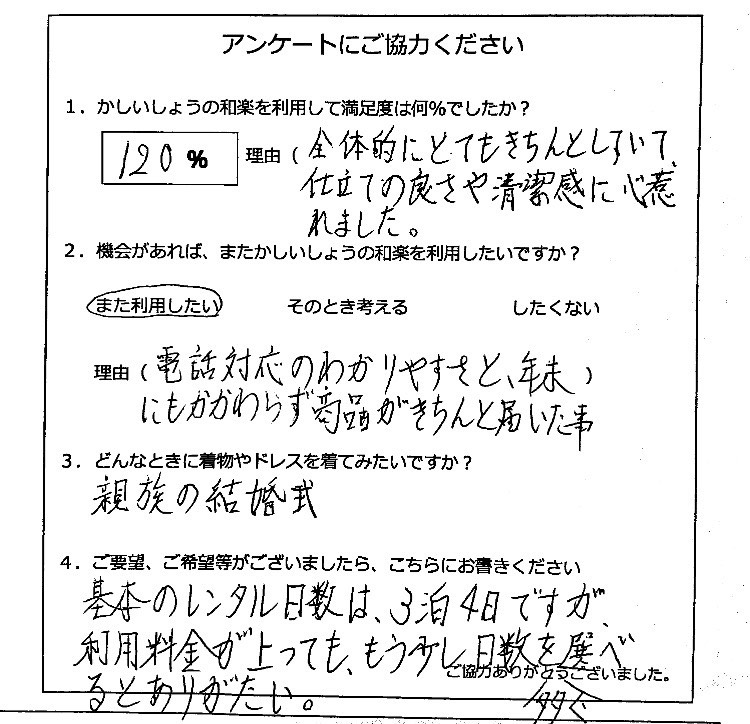 アンケートにご協力ください
1．かしいしょうの和楽を利用して満足度は何%でしたか？
120 %
理由（全体的にとてもきちんとしていて、
仕立ての良さや清潔感に心惹
れました。
2．機会があれば、またかしいしょうの和楽を利用したいですか？
また利用したい そのとき考える したくない
理由（電話対応のわかりやすさと、年末）
にもかかわらず商品がきちんと届いた事
3．どんなときに着物やドレスを着てみたいですか？
親族の結婚式
4．ご要望、ご希望等がございましたら、こちらにお書きください
基本のレンタル日数は、3泊4日ですが、
利用料金が上っても、もう少し日数を
るとありがたい。
ご協力ありがとうございました。